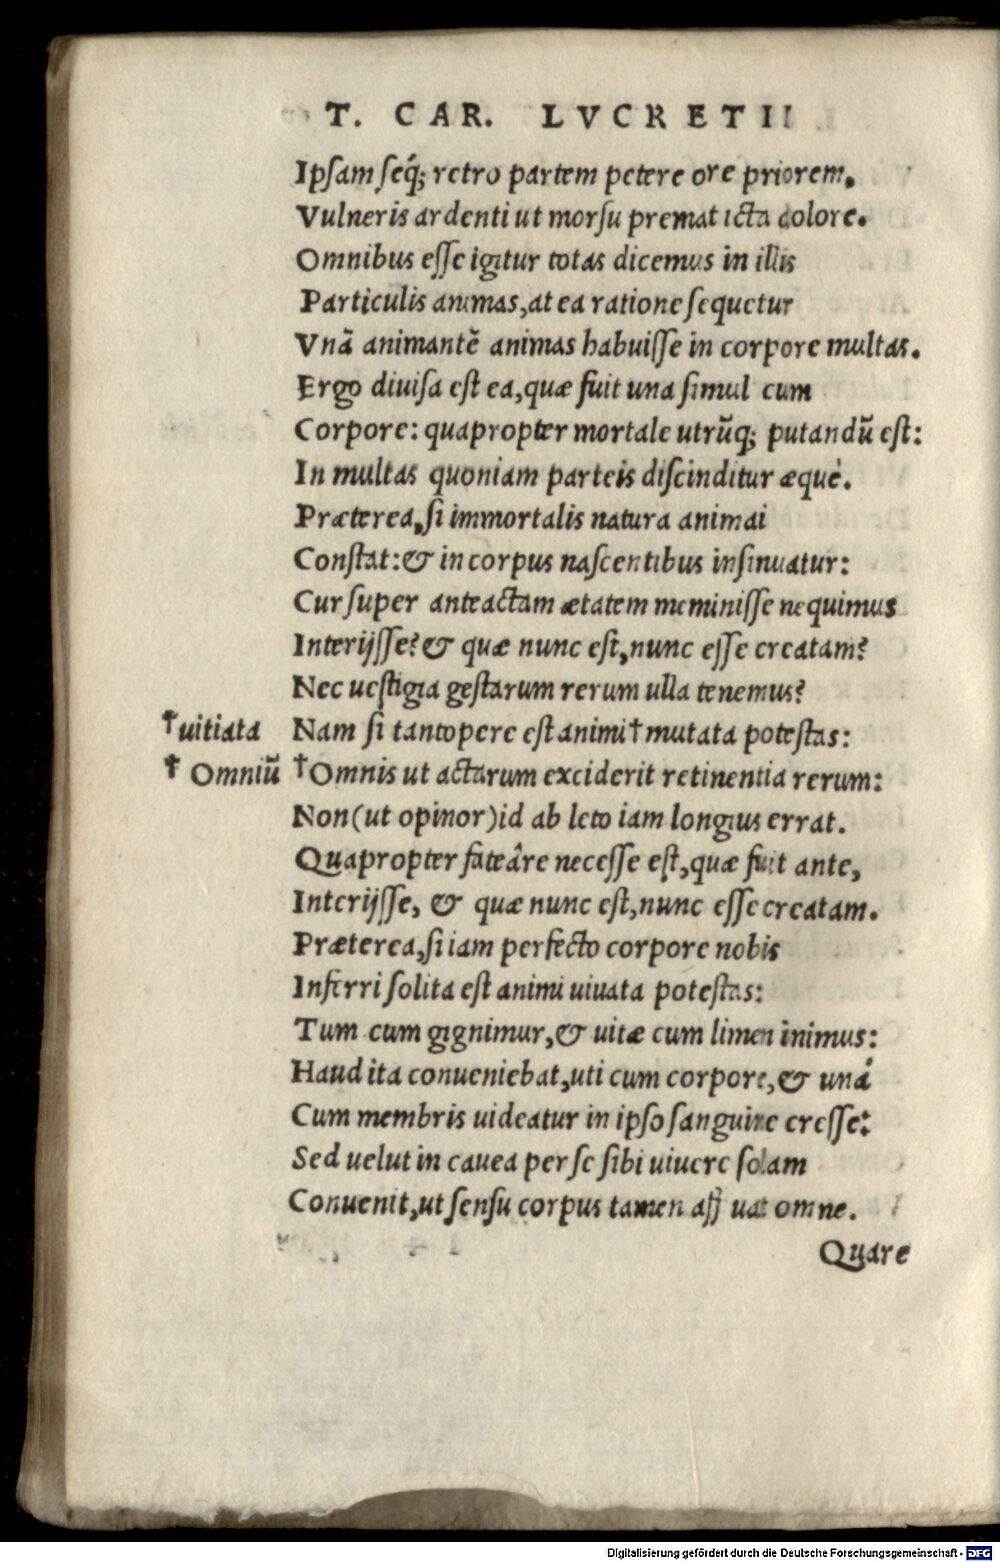 T. CAR. LVCRETII
Ipsam seq́; retro partem petere ore priorem.
Vulneris ardenti ut morsu premat icta dolore.
Omnibus esse igitur totas dicemus in illis
Particulis animas, at ea ratione sequetur
Vnã animantẽ animas habuisse in corpore multas.
Ergo diuisa est ea, quæ fuit una simul cum
Corpore: quapropter mortale utrũq; putandũ est:
In multas quoniam parteis discinditur æquè.
Præterea, si immortalis natura animai
Constat: & in corpus nascentibus insinuatur:
Cur super anteactam ætatem meminisse nequimus
Interijsse? & quæ nunc est, nunc esse creatam?
Nec uestigia gestarum rerum ulla tenemus?
†uitiata Nam si tantopere est animi † mutata potestas:
† Omniũ †Omnis ut actarum exciderit retinentia rerum:
Non (ut opinor) id ab leto iam longius errat.
Quapropter fateâre necesse est, quæ fuit ante,
Interijsse, & quæ nunc est, nunc esse creatam.
Præterea, si iam perfecto corpore nobis
Inferri solita est animi uiuata potestas:
Tum cum gignimur, & uitæ cum limen inimus:
Haud ita conueniebat, uti cum corpore, & unà
Cum membris uideatur in ipso sanguine cresse:
Sed uelut in cauea per se sibi uiuere solam
Conuenit, ut sensu corpus tamen uat omne.
Quare
Digitalisierung gefördert durch die Deutsche Forschungsgemeinschaft - DFG